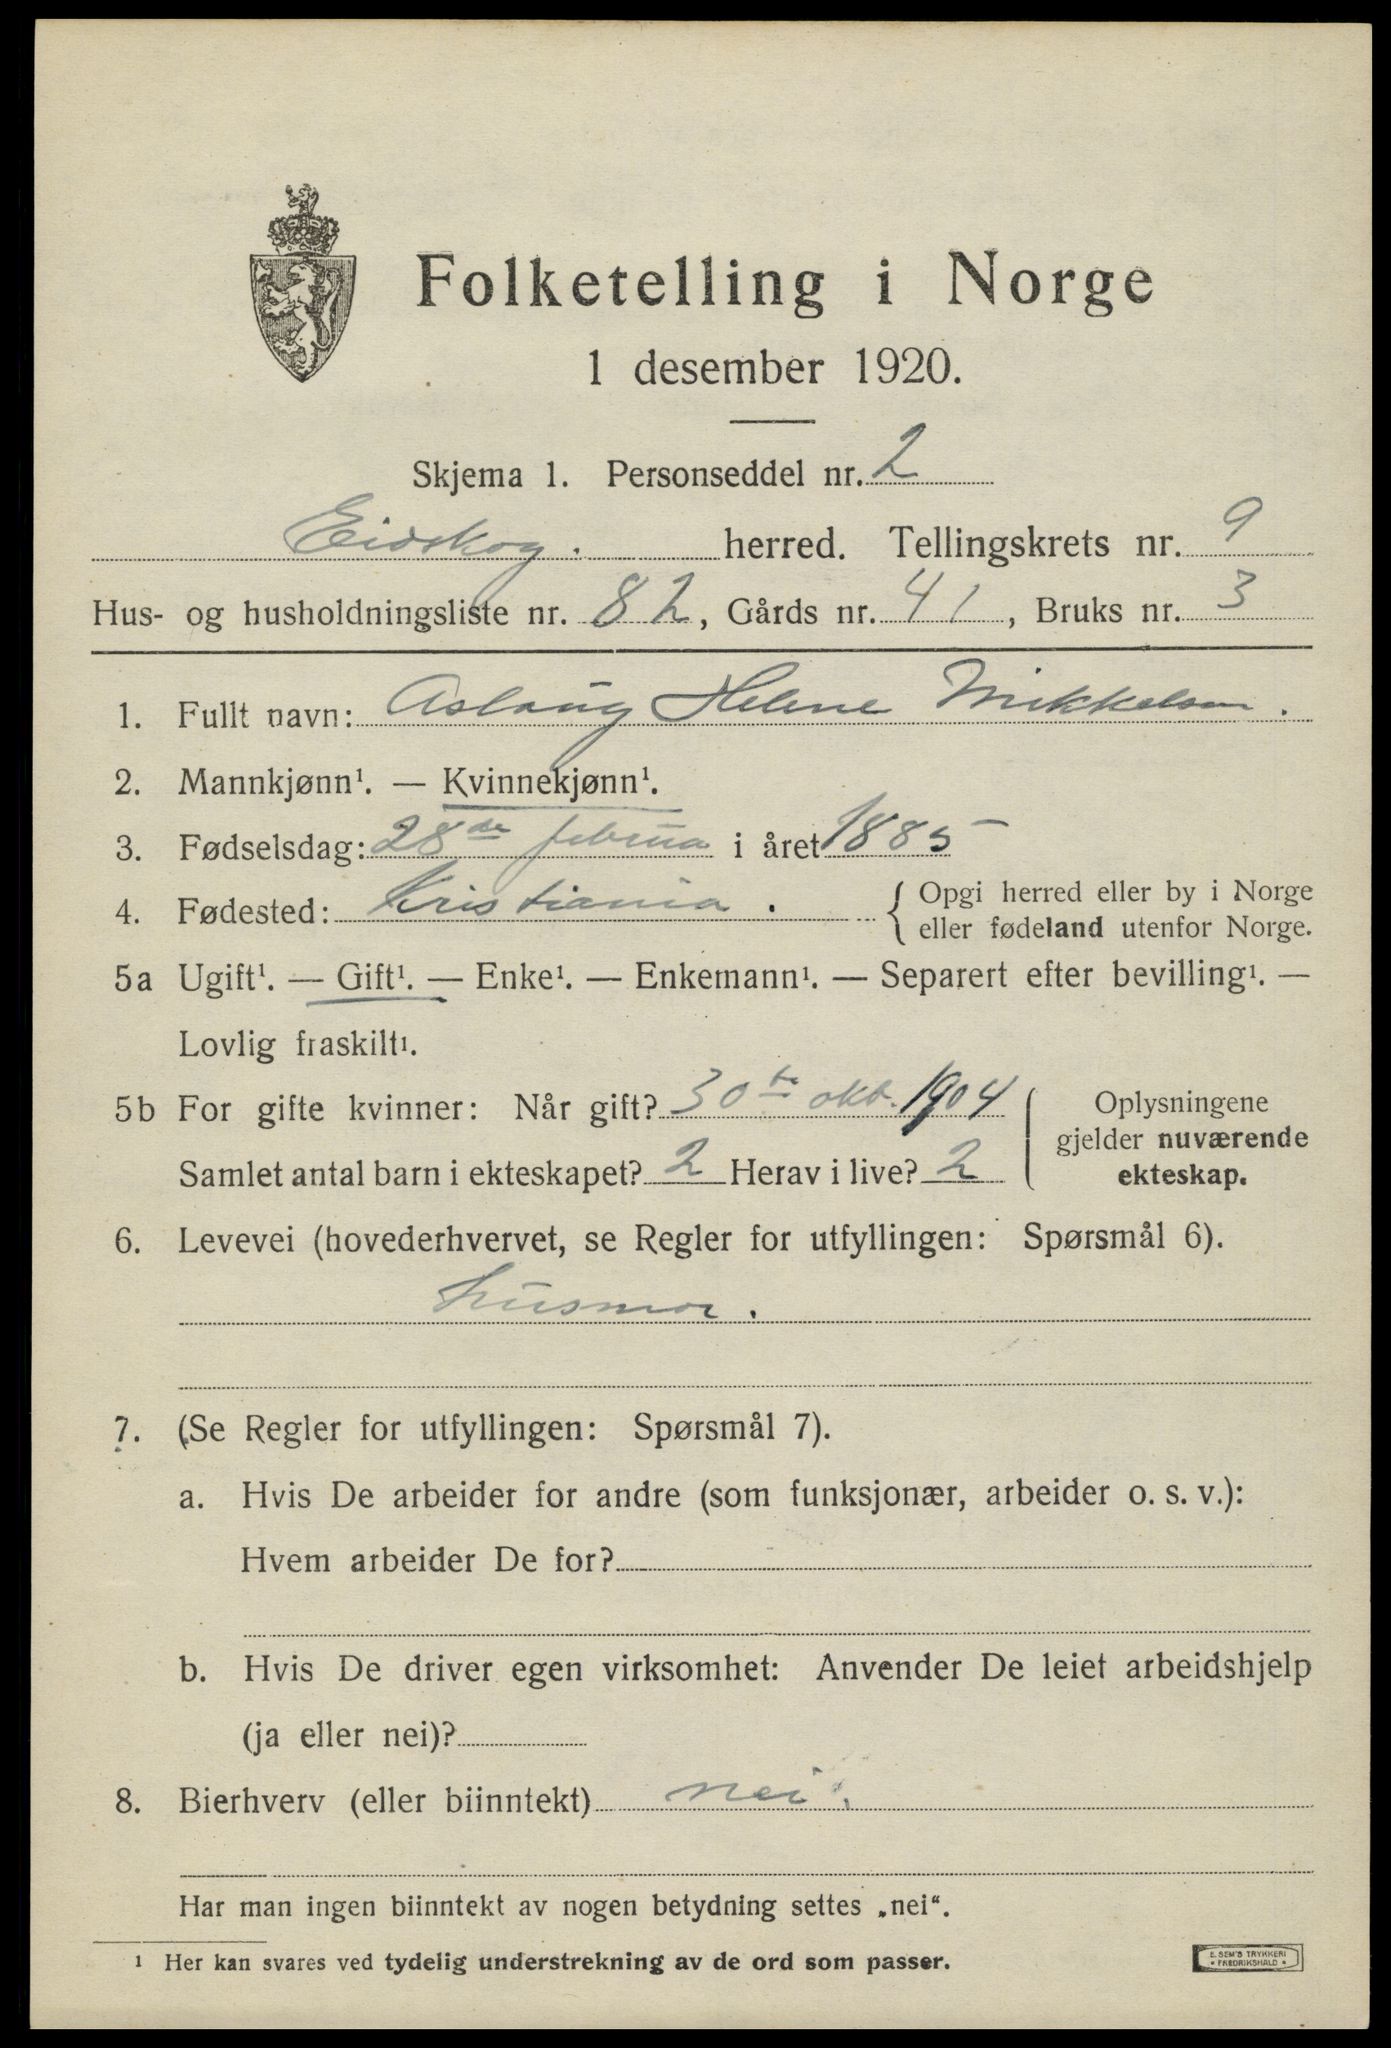 Folketelling i Norge
1 desember 1920.
Skjema 1. Personseddel nr. 2
Eidskog. herred. Tellingskrets nr. 9
Hus- og husholdningsliste nr. 82, Gårds nr. 41, Bruks nr. 3
1. Fullt navn: Aslaug Helene Mikkelsen.
2. Mannkjønn¹. — Kvinnekjønn¹.
3. Fødselsdag: 28de februa i året 1885
4. Fødested: Kristiania. { Opgi herred eller by i Norge
eller fødeland utenfor Norge.
5a Ugift¹. — Gift¹. — Enke¹. — Enkemann¹. — Separert efter bevilling¹. —
Lovlig fraskilt¹.
5b For gifte kvinner: Når gift? 30te okt. 1904
Samlet antal barn i ekteskapet? 2 Herav i live? 2
Oplysningene
gjelder nuværende
ekteskap.
6. Levevei (hovederhvervet, se Regler for utfyllingen: Spørsmål 6).
husmor.
7. (Se Regler for utfyllingen: Spørsmål 7).
a. Hvis De arbeider for andre (som funksjonær, arbeider o. s. v.):
Hvem arbeider De for?
b. Hvis De driver egen virksomhet: Anvender De leiet arbeidshjelp
(ja eller nei)?
8. Bierhverv (eller biinntekt) nei.
Har man ingen biinntekt av nogen betydning settes „nei“.
¹ Her kan svares ved tydelig understrekning av de ord som passer.
E. SEM'S TRYKKERI
* FREDRIKSHALD *